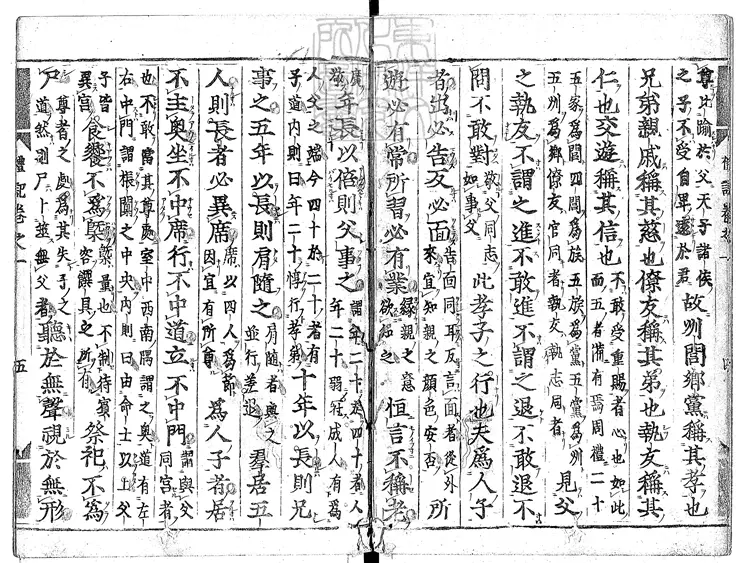 尊比踰於父天子諸侯之子不受自卑遠於君故州閭鄉黨稱其孝也
兄弟親戚稱其慈也僚友稱其弟也執友稱其
仁也交遊稱其信也不敢受重賜者心也如此而五者備有焉周禮二十
五家爲閭四閭爲族五族爲黨五黨爲州五州爲鄉僚友官同者執友執志同者見父
之執友不謂之進不敢進不謂之退不敢退不
問不敢對敬父同志如事父此孝子之行也夫爲人子
者出必告反必面告面同耳反言面者從外來宜知親之顔色安否所
遊必有常所習必有業緣親之意欲知之恒言不稱老
廣敬年長以倍則父事之謂年二十於四十者人年二十弱冠成人有爲
人父之端今四十於二十者有子道内則曰年二十惇行孝弟十年以長則兄
事之五年以長則肩隨之肩隨者與之並行差退羣居五
人則長者必異席席以四人爲節因宜有所尊爲人子者居
不主奥坐不中席行不中道立不中門謂與父同宮者
也不敢當其尊處室中西南隅謂之奥道有左右中門謂棖闑之中央内則曰由命士以上父
子皆異宮食饗不爲槩槩量也不制待賓客饌具之所有祭祀不爲
尸尊者之處爲其失子之道然則尸卜筮無父者聽於無聲視於無形
禮記卷之一 五